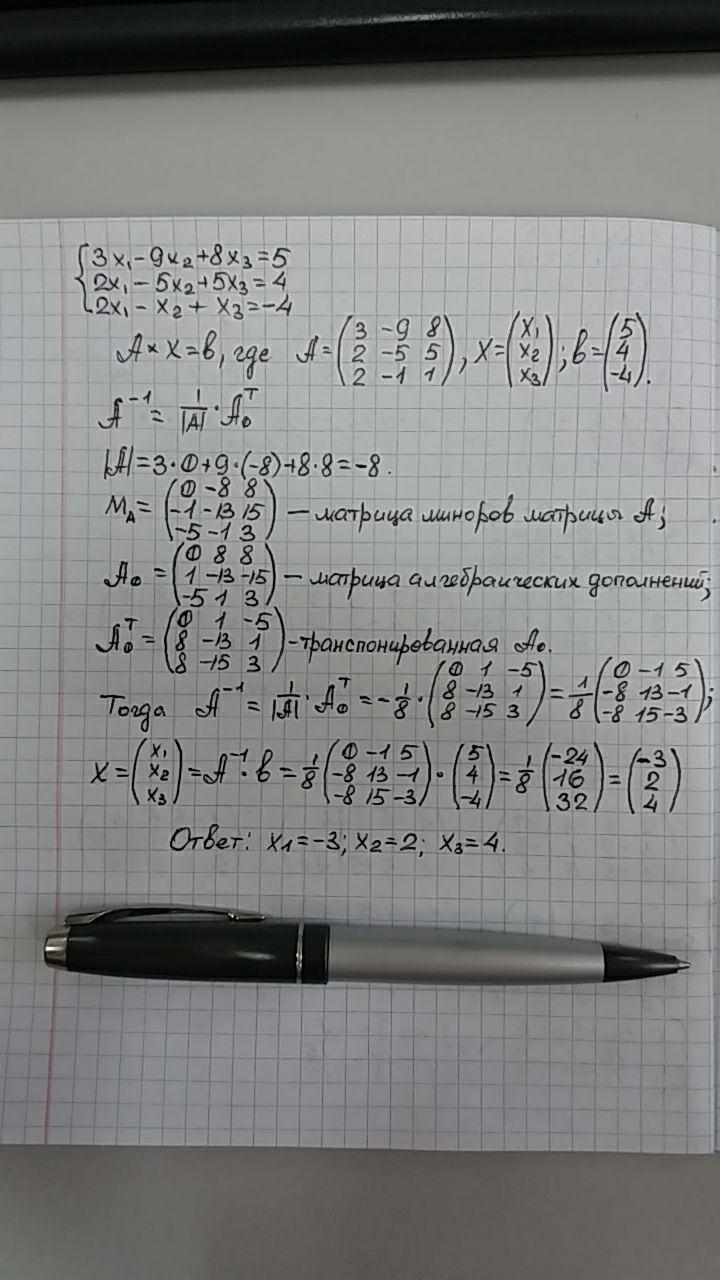 {3x₁-9x₂+8x₃=5
2x₁-5x₂+5x₃=4
2x₁-x₂+x₃=-4
A*X=b, где A=(3 -9 8; 2 -5 5; 2 -1 1), X=(x₁; x₂; x₃); b=(5; 4; -4).
A⁻¹=1/|A|·A₀ᵀ
|A|=3·0+9·(-8)+8·8=-8.
M_A=(0 -8 8; -1 -13 15; -5 -1 3) – матрица миноров матрицы A;
A₀=(0 8 8; 1 -13 -15; -5 1 3) – матрица алгебраических дополнений;
A₀ᵀ=(0 1 -5; 8 -13 1; 8 -15 3) -транспонированная A₀.
Тогда A⁻¹=1/|A|·A₀ᵀ=-1/8·(0 1 -5; 8 -13 1; 8 -15 3)=1/8(0 -1 5; -8 13 -1; -8 15 -3);
X=(x₁; x₂; x₃)=A⁻¹·b=1/8(0 -1 5; -8 13 -1; -8 15 -3)·(5; 4; -4)=1/8(-24; 16; 32)=(-3; 2; 4)
Ответ: x₁=-3; x₂=2; x₃=4.